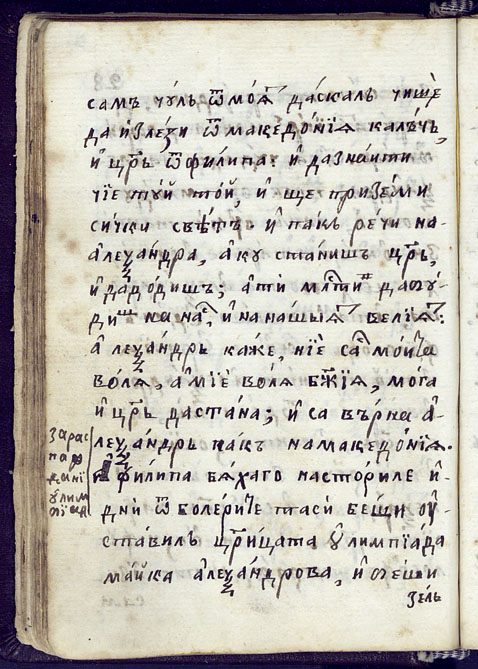 самъ чꙋлъ ѿ моѧ даскалъ чище
да излези ѿ македонїѧ калъчь,
и црь ѿ филипа: и да знаити
чїе тꙋй той, и ще приземи
сички свѣтъ и пакъ речи на-
алеѯандра, акꙋ станишъ црь,
и да додишъ; а ти млсти да сꙋ-
диш на нас, и на нашыѧ велїѧ:
алеѯандръ каже, нїе са мои та
волѧ, амїе волѧ бжїѧ, мога
и црь да стана; и са върна а-
леѯандръ пакъ на македонїѧ.
и филипа бѧхаго насториле и-
дни ѿ болерите таси бещи оу-
ставилъ црицата ѹлимпїада
майка алеѯандрова, и ѻтещи
зелъ
зарас
пар
кані
ѹлим
піад